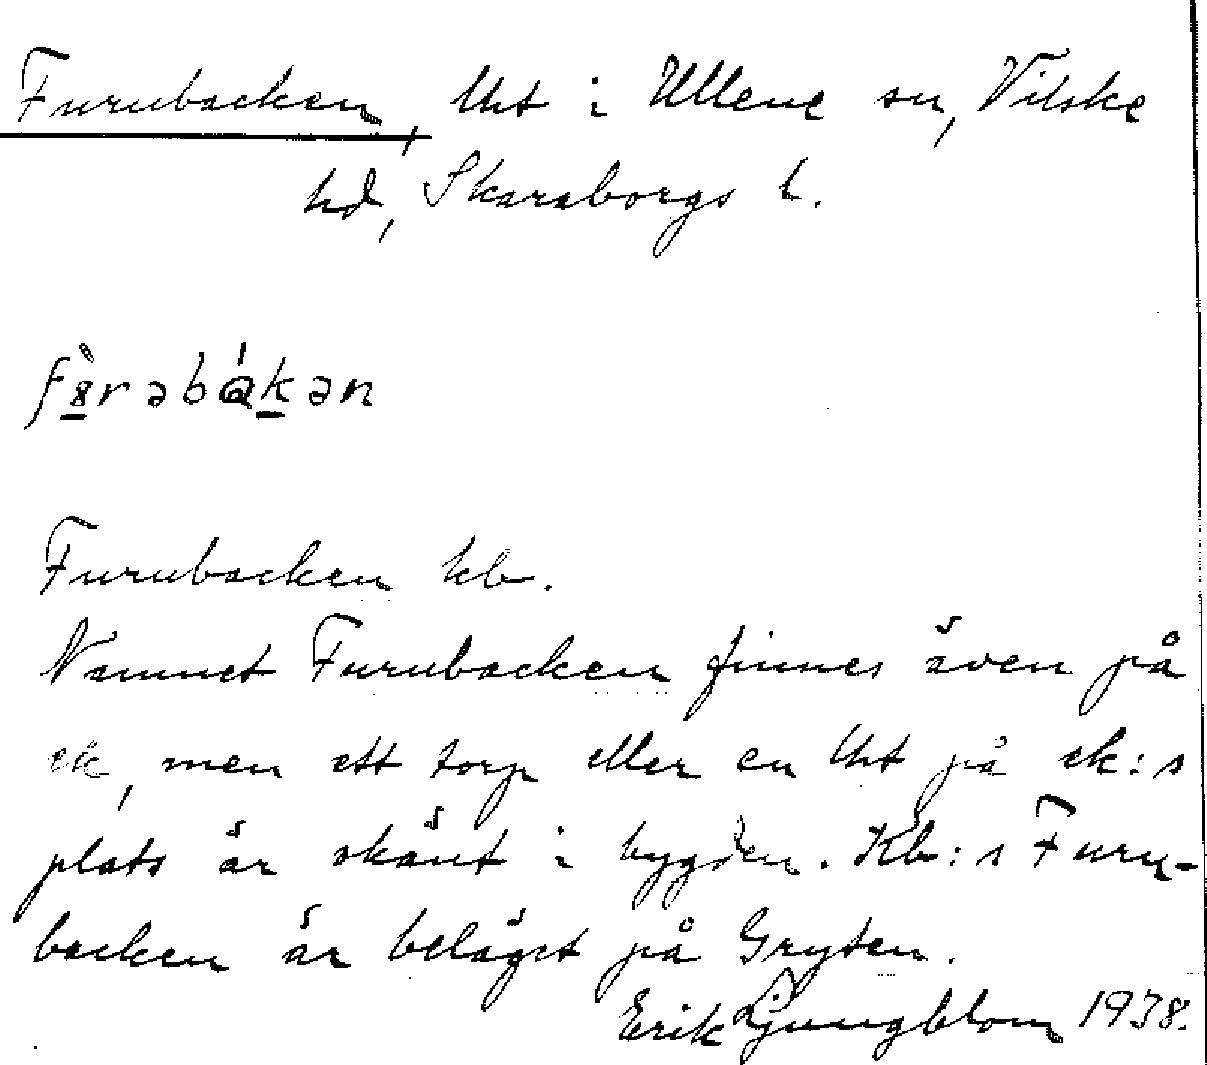 Furubacken, lht i Ullene sn, Vilske
hd, Skaraborgs l.
Furubacken kb.
Namnet Furubacken finnes även på
ek, men ett torp eller en lht på ek:s
plats är okänt i bygden. Kb:s Furu-
backen är beläget på Gryten.
Erik Ljungblom 1938.